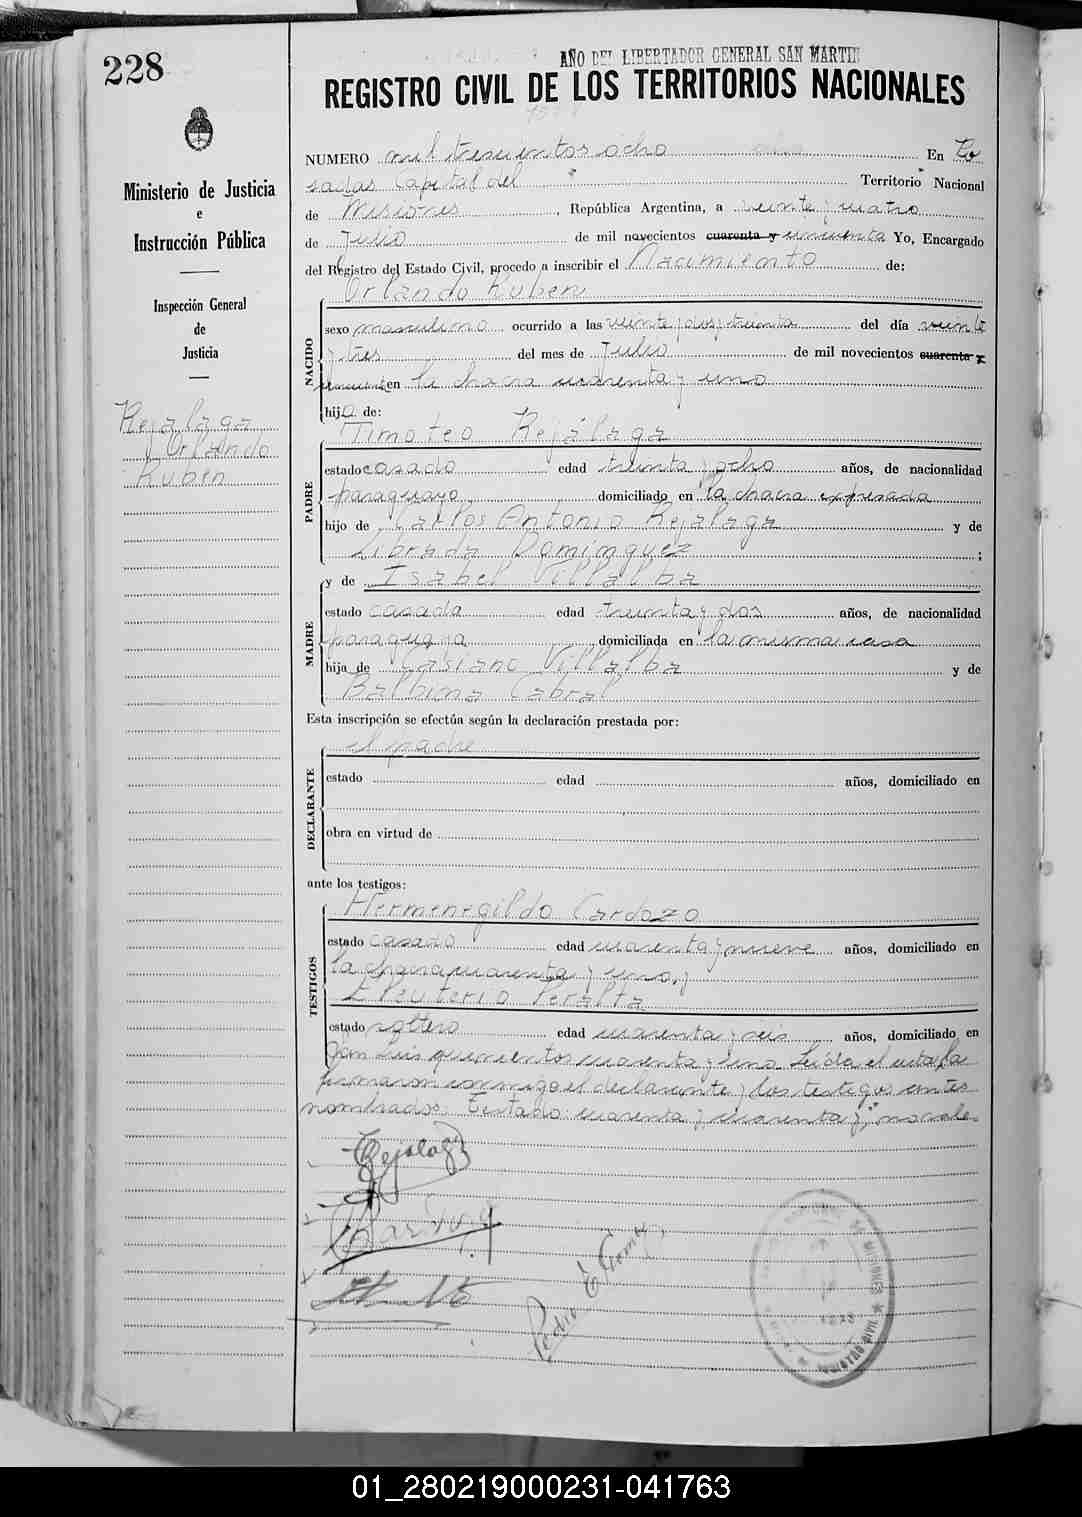 228
AÑO DEL LIBERTADOR GENERAL SAN MARTIN
REGISTRO CIVIL DE LOS TERRITORIOS NACIONALES
Ministerio de Justicia
e
Instrucción Pública
Inspección General
de
Justicia
Rejalaga
Orlando
Ruben
NUMERO mil trescientos ocho En Po
sadas Capital del Territorio Nacional
de Misiones, República Argentina, a veinte y cuatro
de Julio de mil novecientos cuarenta y cincuenta Yo, Encargado
del Registro del Estado Civil, procedo a inscribir el Nacimiento de:
Orlando Ruben
NACIDO
sexo masculino ocurrido a las veinte y dos y treinta del día veinte
y tres del mes de Julio de mil novecientos cuarenta y
cincuenta en la chacra cuarenta y uno
hijo de:
Timoteo Rejálaga
PADRE
estado casado edad treinta y ocho años, de nacionalidad
paraguayo, domiciliado en la chacra expresada
hijo de Carlos Antonio Rejalaga y de
Librada Dominguez ;
y de Isabel Villalba
MADRE
estado casada edad treinta y dos años, de nacionalidad
paraguaya domiciliada en la misma casa
hija de Casiano Villalba y de
Balbina Cabral
Esta inscripción se efectúa según la declaración prestada por:
el padre
DECLARANTE
estado edad años, domiciliado en
obra en virtud de
ante los testigos:
Hermenegildo Cardozo
TESTIGOS
estado casado edad cuarenta y nueve años, domiciliado en
la chacra cuarenta y uno, y
Eleuterio Peralta
estado soltero edad cuarenta y seis años, domiciliado en
San Luis quinientos cuarenta y uno. Leida el acta, la
firmaron conmigo el declarante y los testigos antes
nombrados. Testado: cuarenta y, cuarenta y, no vale.
Rejalaga
Cardozo
Pedro E. Gomez
MISIONES
REGISTRO CIVIL
01_280219000231-041763